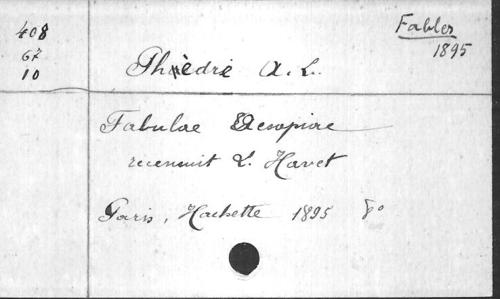 408
67
10
Fables
1895
Phèdre A. L.
Fabulae Aesopiae
recensuit L. Havet
Paris, Hachette 1895 8°